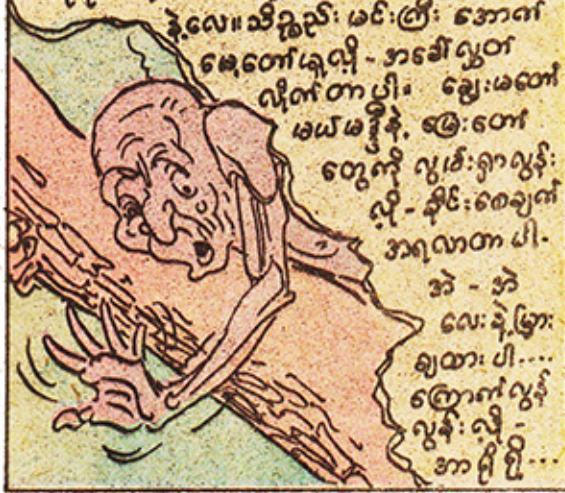 နဲ့လေ။ သိဥ္စည်း မင်းကြီး အောက်
မေ့တော်မူလို့ - အခေါ်လွှတ်
လိုက်တာပါ။ ချွေးမတော်
မယ်မဒ္ဒီနဲ့ မြေးတော်
တွေကို လွမ်းရှာလွန်း
လို့ - ခိုင်းစေချက်
အရလာတာ ပါ-
အဲ - အဲ
လေးနဲ့မြှား
ချထား ပါ....
ကြောက်လွန်
လွန်းလို့ -